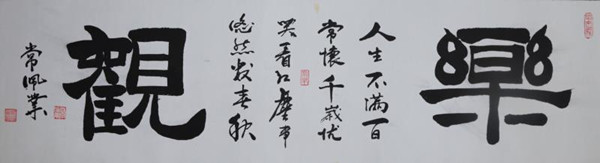 樂
人生不滿百
常懷千歲忧
笑看红塵事
悠然数春秋
觀
常佩業